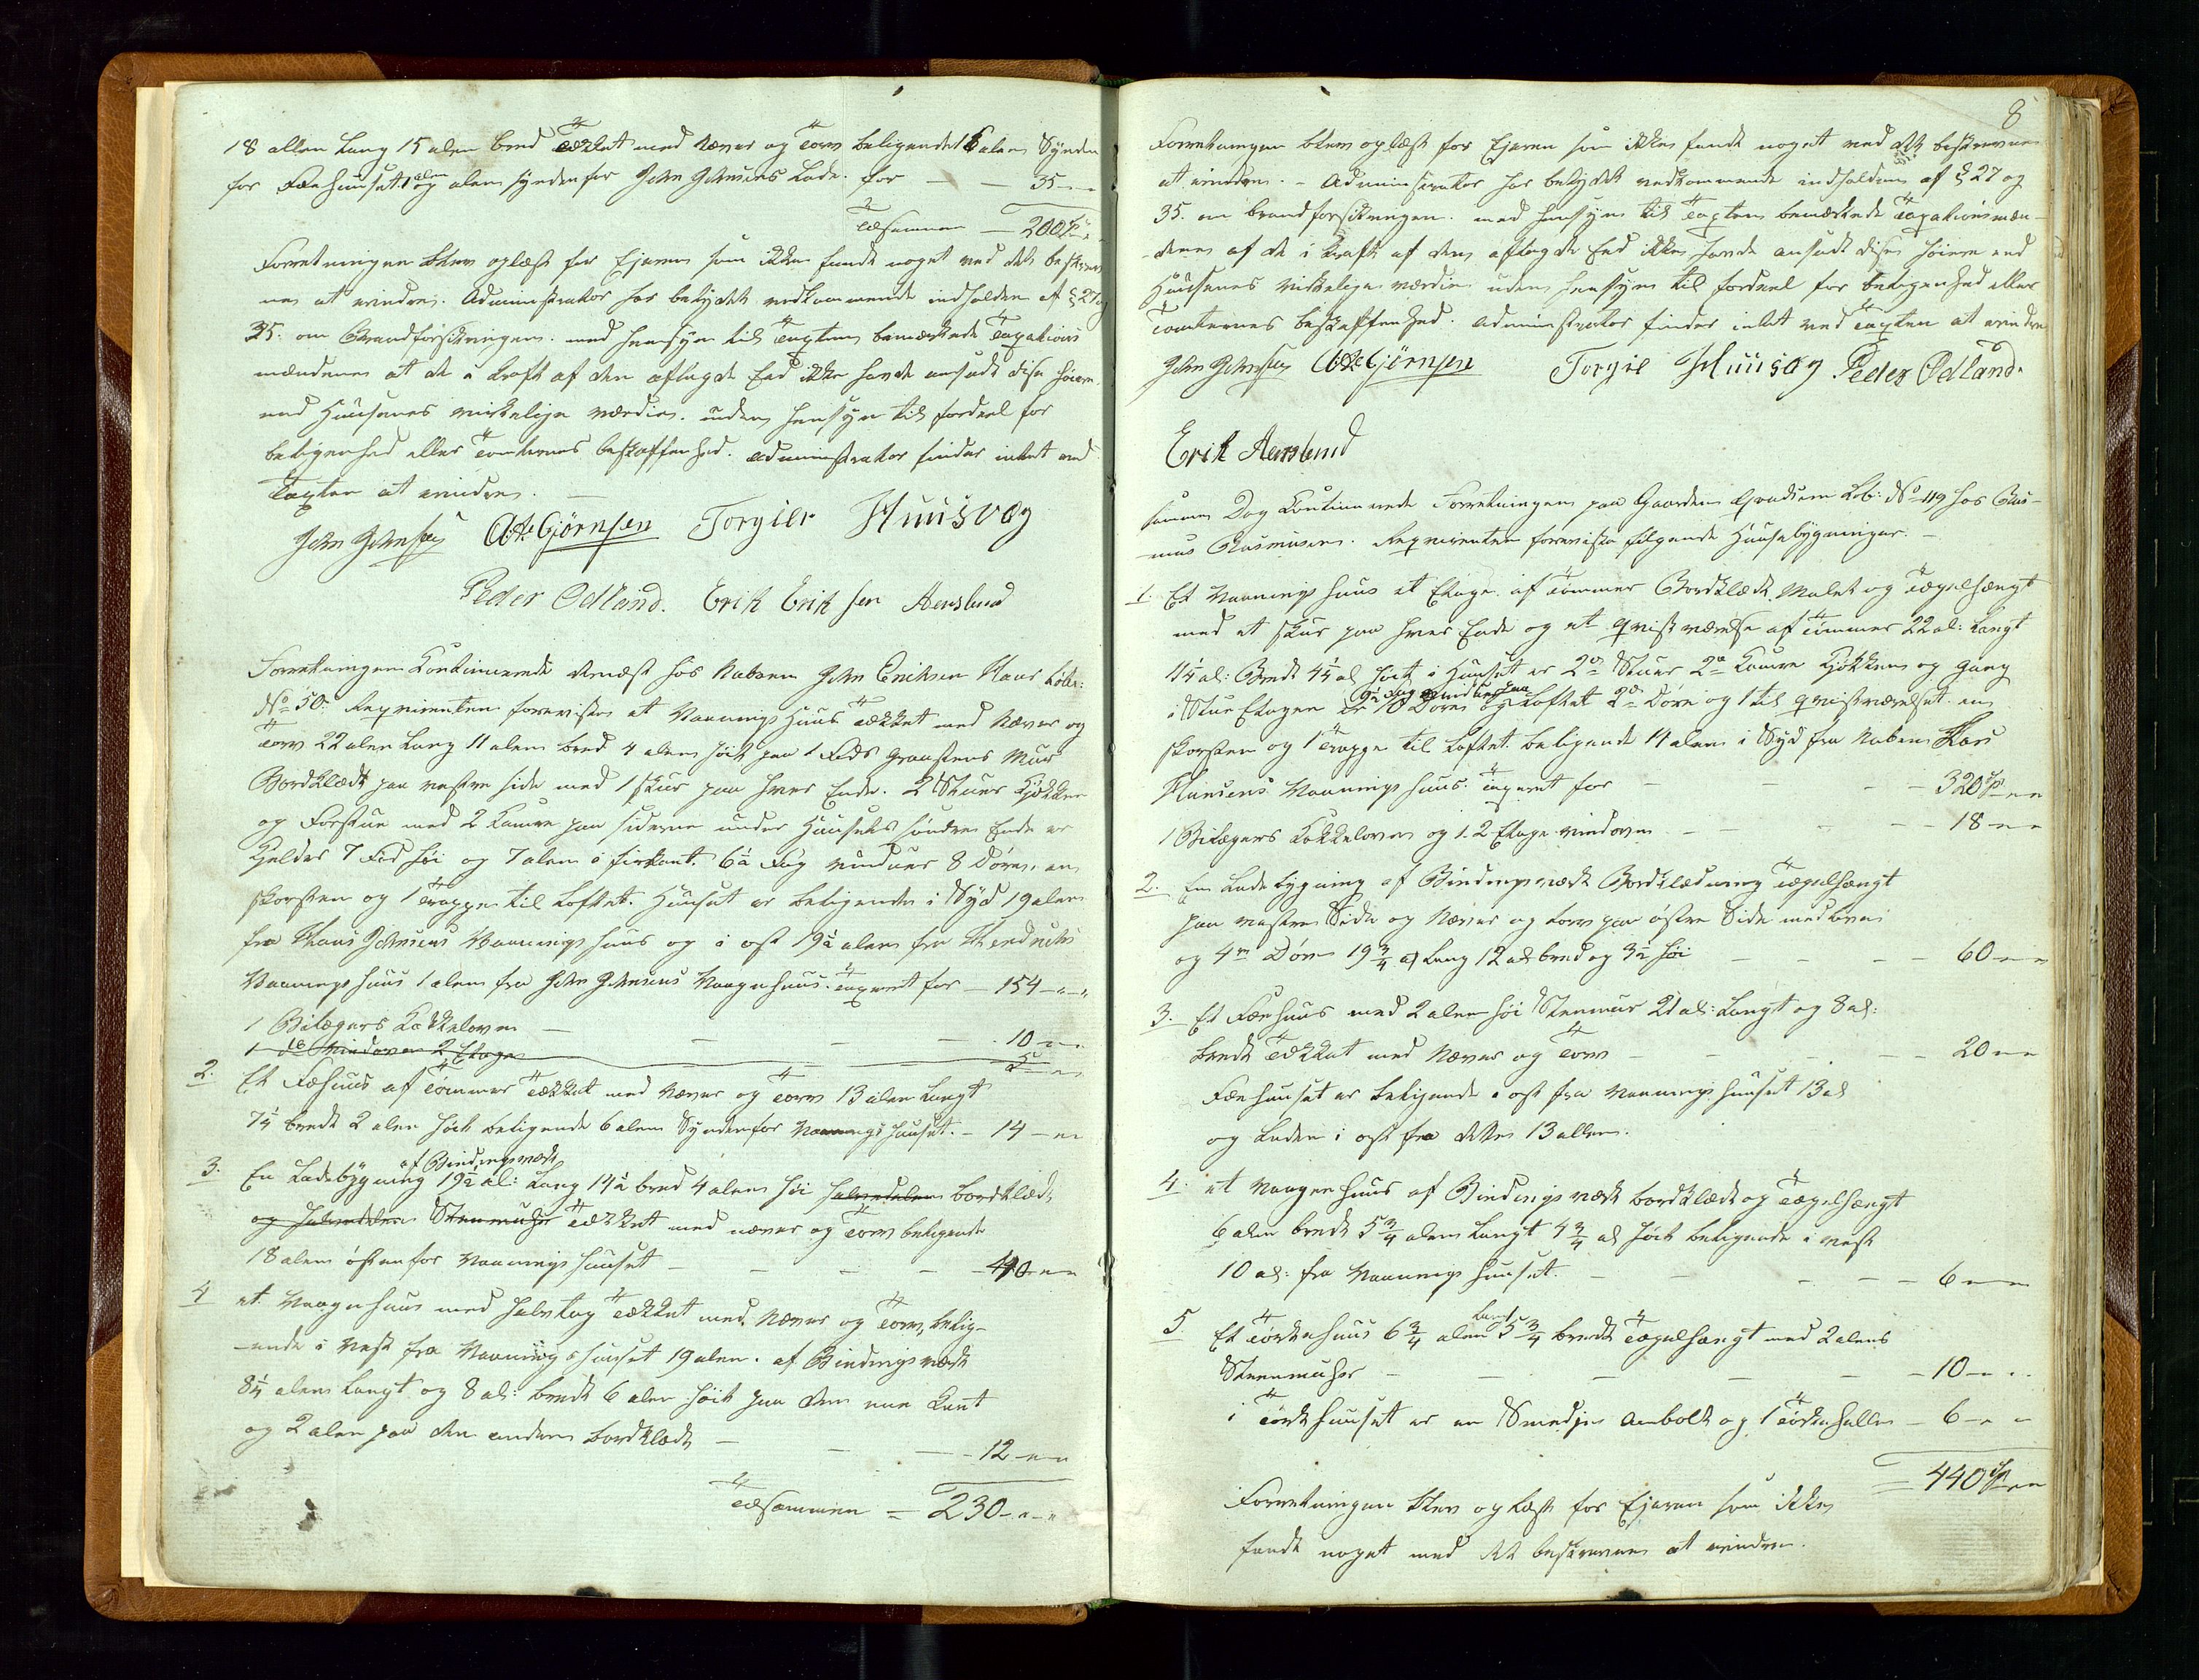 18 allen Lang 15 alen bred Tækket med Næver og Torv beligende 16 alen Synden
for Fæehuuset 1 alen og alen syndenfor John Johnsens Lade. for — — 35 — "
Tilsammen — 200 Sp "
Forretningen blev oplæst for Ejeren som ikke fandt noget ved det beskrev
ne at erindre. Administrator har betydet vedkommende indholdene af § 27 og
35. om Brandforsikringen. med hensyn til Taxten bemærkede Taxations
mændene at de i kraft af den aflagde Eed ikke havde ansadt disse høiere
end Huusenes virkelige værdie. uden hensyn til fordeel for
beligenhed eller Tomternes beskaffenhed. administrator finder intet ved
Taxten at erindre. —
John Johnsen A. A. Gjörnsen Torgier Huusvog
Peder Odland. Erik Erik sen Aensland
Forretningen Kontinuerede dernæst hos Naboen John Eriksen Haar Løbe:
No 50. Reqvirenten foreviste et Vaanings Huus Tækket med Næver og
Torv 22 alen Lang 11 alen bred 4 alen høit paa 1 Fods graasteens Muur
Bordklædt paa vestre side med 1 skur paa hver Ende. 2 Stuer Kjøkken
og Forstue med 2 Kamre paa siderne under Huusets søndre Ende er
Kjelder 7 Fod høi og 7 alen i firkant. 6 à Fag vinduer 8 Døre, en
skorsten og 1 Trappe til Loftet. Huuset er beligende i Syd 19 alen
fra Hans Johnsens Vaanings huus og i ost 19½ alen fra Hendriks
Vaanings huus 1 alen fra John Johnsens Vaagnhuus. Taxeret for — 154 — " — "
1 Bilægers Kakkeloven — — — — 10 — " —
1 do Vindoven 2 Etager — — — 5 — "
2. Et Fæhuus af Tømmer Tækket med Næver og Torv 13 alen Langt
7¼ bredt 2 alen høit beligende 6 alen Syndenfor Vaanings huuset. — 14 — " "
af Bindingsværk
3. En Ladebÿgning 19½ al: Lang 14½ bred 4 alen høi halvedelen bordklædt
og halvedelen Steenmuhr Tækket med næver og Torv beligende
18 alen østenfor Vaanings huuset — — — — 40 — " —
4 et Vaagnhuus med halvtag Tækket med Næver og Torv, belig-
-ende i Vest fra Vaanings huuset 19 alen. af Bindings værk
8¼ alen Langt og 8 al: bredt 6 alen høit paa den ene Kant
og 2 alen paa den anden bordklædt — — — — 12 — " —
Tilsammen = 230 — " — "
8
Forretningen blev oplæst for Ejeren som ikke fandt noget ved det beskrevne
at erindre. — Administrator har betydet vedkommende indholdene af § 27 og
35. om brandforsikringen. med hensyn til Taxten bemærkede Taxationsmæn-
-dene at de i kraft af den aflagde Eed ikke havde ansadt disse høiere end
Huusenes virkelige værdie uden hensyn til fordeel for beligenhed eller
Tomternes beskaffenhed. administrator finder intet ved Taxten at erindre
John Johnsen A. A. Gjörnsen Torgie Huusog Peder Odland.
Erik Aensland
samme Dag Kontinuerede Forretningen paa Gaarden Løb: No 119 hos Ras-
-mus Rasmusen. Reqvirenten foreviste følgende Huusebygninger. —
1. Et Vaanings huus et Etage. af Tømmer Bordklædt Malet og Tægelhængt
med et skur paa hver Ende og et qvist værelse af Tømmer 22 al: Langt
11¼ al: Bredt 4¼ al høit i Huuset er 2de Stuer 2de Kamre Kjøkken og gang
9½ Fag vinduer paa
i Stue Etagen er 10 Døre og Loftet 2de Døre og 1 til qvistværelset en
skorsten og 1 Trappe til Loftet. beligende 14 alen i Syd fra Naboen Lars
Hansens Vaanings huus. Taxeret for — — — — 320 Sp — " "
1 Bilægers Kakkeloven og 1. 2 Etage vindoven — — — — 18 — " "
2. En Ladebygning af Bindingsværk Bordklædning Tægelhængt
paa vestre Side og Næver og Torv paa østre Side med
og 4re Døre 19¾ al Lang 12 al bred og 3½ høi — — — — 60 — " "
3. Et Fæehuus med 2 alen høi Steenmur 21 al: Langt og 8 al:
bredt Tækket med Næver og Torv — — — — 20 " "
Fæehuuset er beligende i ost fra Vaanings huuset 13 al
og Laden i ost fra dette 13 allen.
4. et Vaagenhuus af Bindings værk bordklædt og Tægelhængt
6 alen bredt 5¾ alen Langt 4¾ al høit beligende i vest
10 al: fra Vaanings huuset. — — — — 6 — " —
5 Et Tørkehuus 6¾ alen Langt 5¾ bredt Tægelhængt med 2 alens
Steenmuhr — — — — — 10 — " "
i Tørkehuuset er en Smedje Ambolt og 1 Tørkehelle — 6 — " "
= 440 Sp " "
Forretningen blev oplæst for Ejeren som ikke
fandt noget med det beskrevne at erindre.